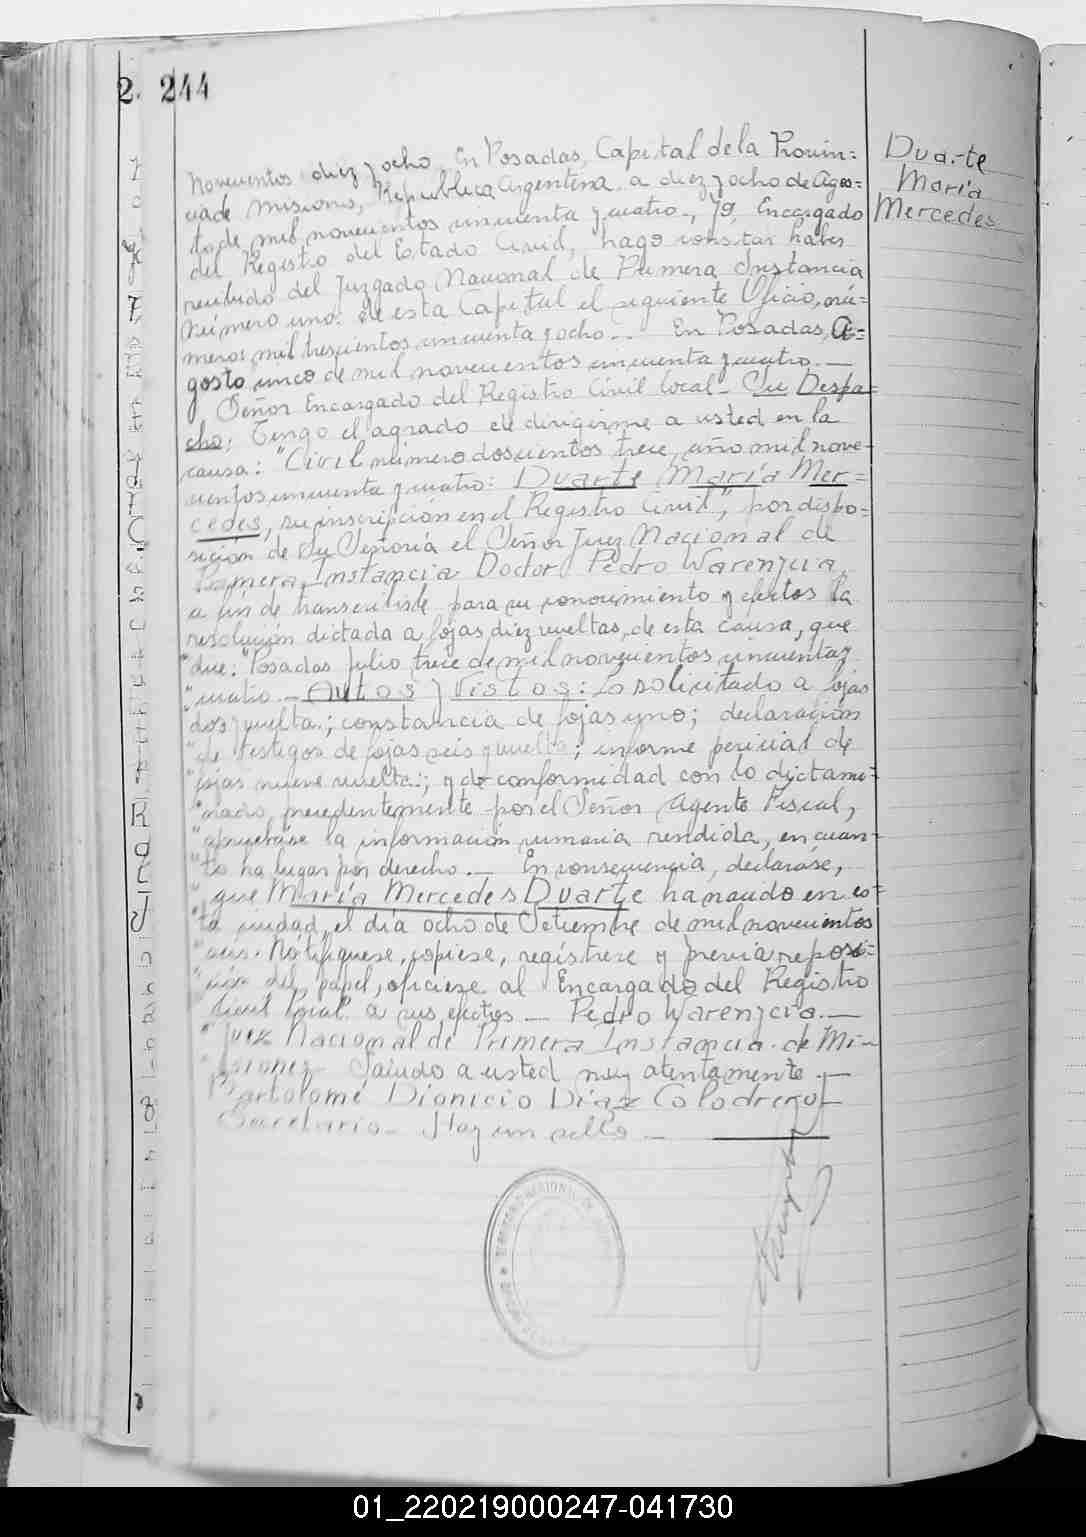 2. 244
Novecientos diez y ocho. En Posadas, Capital de la Provin=
cia de Misiones, Republica Argentina, a diez y ocho de Agos=
to de mil novecientos cincuenta y cuatro.-, Yo, Encargado
del Registro del Estado Civil, hago constar haber
recibido del Juzgado Nacional de Primera Instancia
Número uno: de esta Capital el siguiente Oficio, nú=
mero: mil trescientos cincuenta y ocho.-- En Posadas, A=
gosto cinco de mil novecientos cincuenta y cuatro.—
Señor Encargado del Registro Civil local- Su Despa=
cho: Tengo el agrado de dirigirme a usted en la
causa: "Civil número doscientos trece, año mil nove-
cientos cincuenta y cuatro: Duarte María Mer=
cedes, su inscripción en el Registro Civil", por dispo=
sición de Su Señoría el Señor Juez Nacional de
Primera Instancia Doctor Pedro Warenycia,
a fin de transcribirle para su conocimiento y efectos la
resolución dictada a fojas diez vueltas, de esta causa, que
"dice: "Posadas Julio trece de mil novecientos cincuenta y
"cuatro.- Autos y Vistos: Lo solicitado a fojas
dos y vuelta.; constancia de fojas uno; declaración
"de testigos de fojas seis y vuelta; informe pericial de
"fojas nueve vuelta.; y de conformidad con lo dictami=
"nado, precedentemente por el Señor Agente Fiscal,
"apruébase la información sumaria rendida, en cuan-
"to ha lugar por derecho.- En consecuencia, declárase,
"que María Mercedes Duarte ha nacido en es=
"ta ciudad, el día ocho de Setiembre de mil novecientos
"seis. Notifíquese, cópiese, regístrese y previa reposi=
"ción del papel, ofíciese al Encargado del Registro
"Civil local a sus efectos — Pedro Warenycia.—
"Juez Nacional de Primera Instancia de Mi-
"siones- Saludo a usted muy atentamente.—
Bartolomé Dionicio Díaz Colodrero—
Secretario- Hay un sello —
Duarte
María
Mercedes
01_220219000247-041730